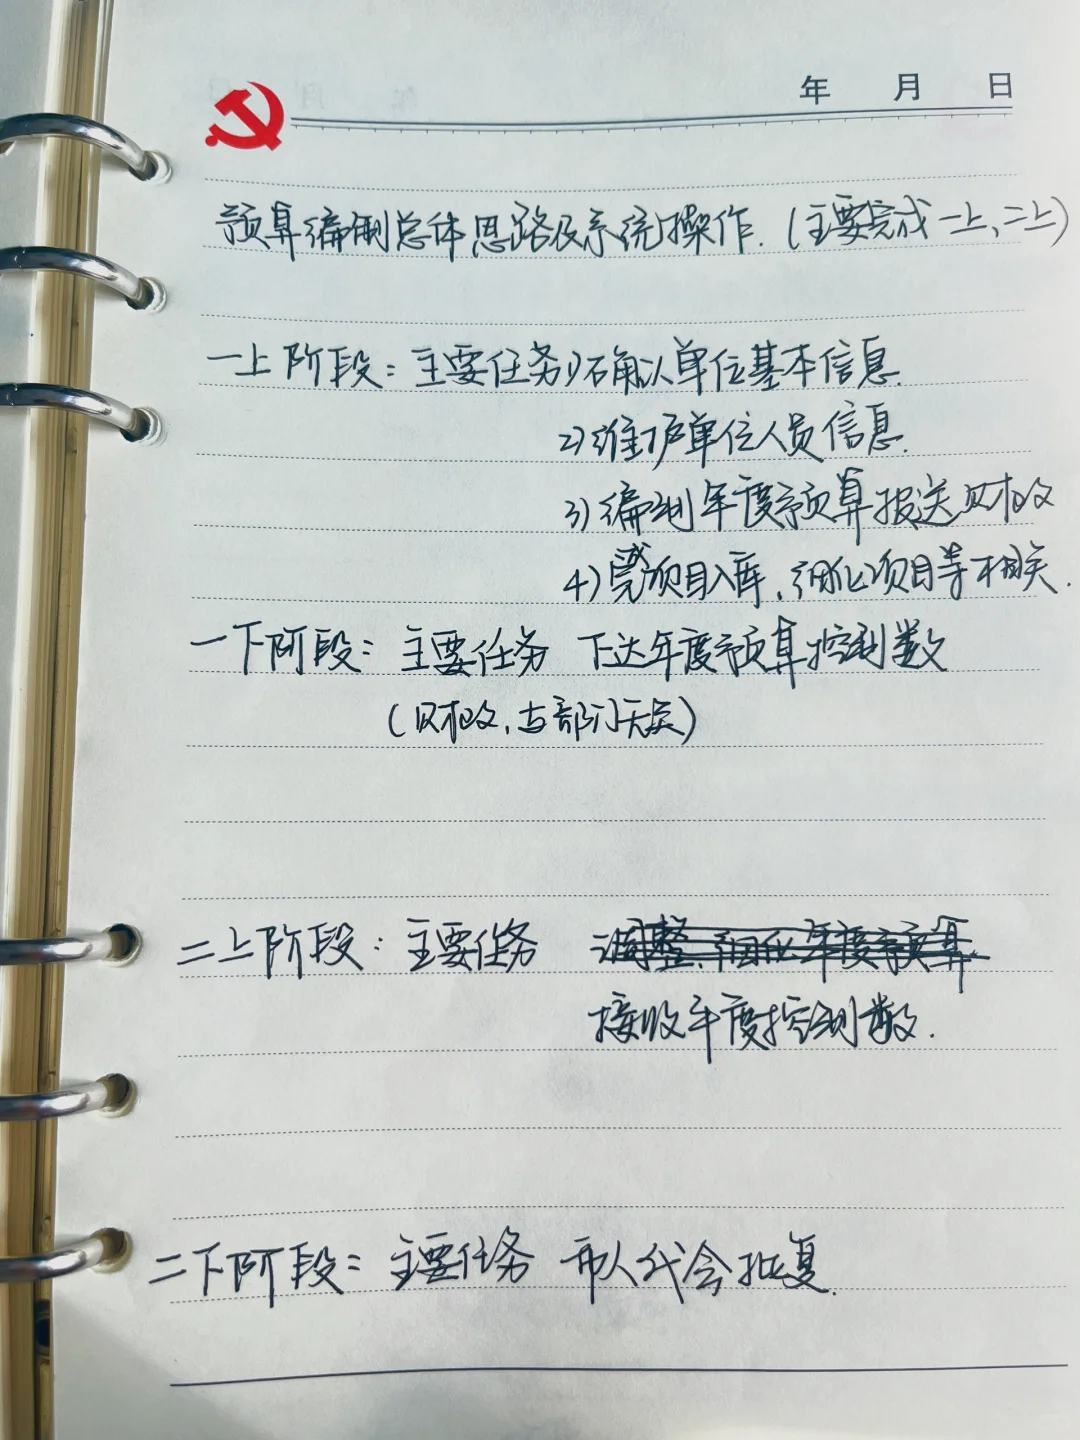 年 月 日
预算编制总体思路及系统操作.(主要完成一上、二上)
一上阶段:主要任务1)确认单位基本信息.
2)维护单位人员信息.
3)编制年度预算报送财政
4)需项目入库、细化项目等相关.
一下阶段:主要任务 下达年度预算控制数
(财政,与部门无关)
二上阶段:主要任务 调整、细化年度预算
接收年度控制数.
二下阶段:主要任务 市人代会批复.